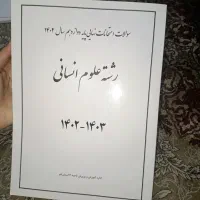 سوالات امتحانات نهایی پایه دوازدهم سال ۱۴۰۲
رشته علوم انسانی
۱۴۰۲-۱۴۰۳